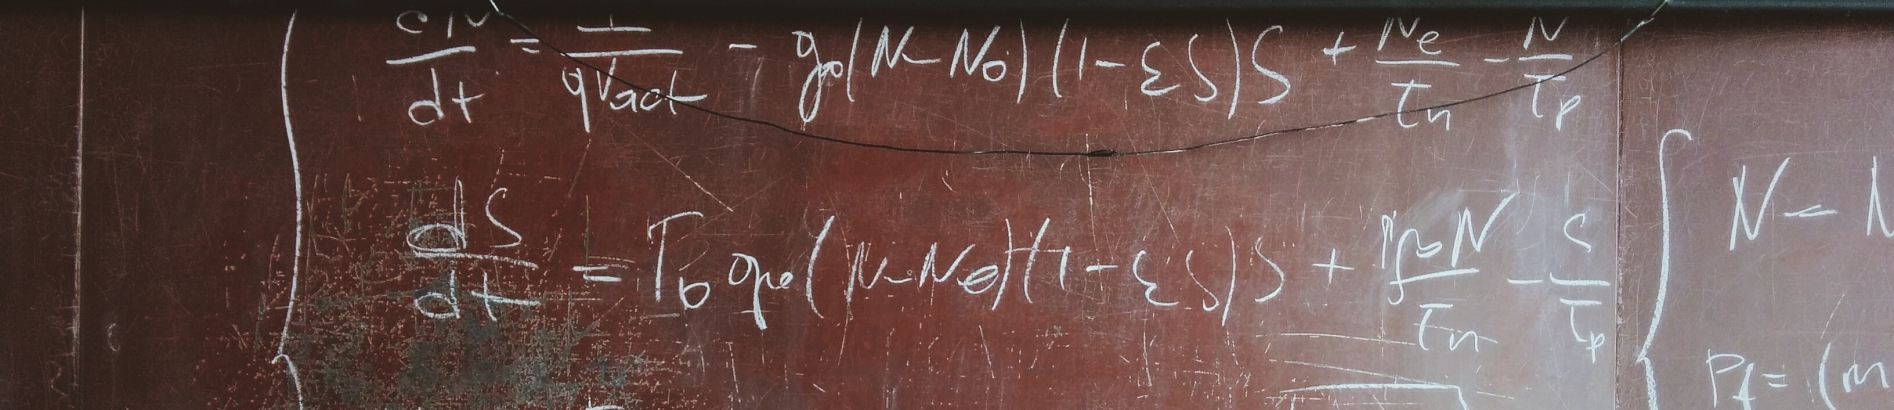 dN/dt = I/qVact - g0(N - N0)(1 - εS)S + Ne/τn - N/τp
dS/dt = Γ0 g0(N - N0)(1 - εS)S + N/τn - S/τp
N - N
Pf = (m